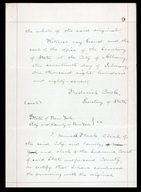 9
the whole of the said original.
Witness my hand and the
seal of the office of the Secretary
of State, at the City of Albany,
the seventeenth day of
one thousand eight hundred
and eighty
Frederick Cook,
Secretary of State
(Seal)
State of New York
City and County of New York } ss
I, Clerk of
the said City and County,
Clerk of the Supreme Court
of said State and County,
do certify, that I have compared
the preceding with the original